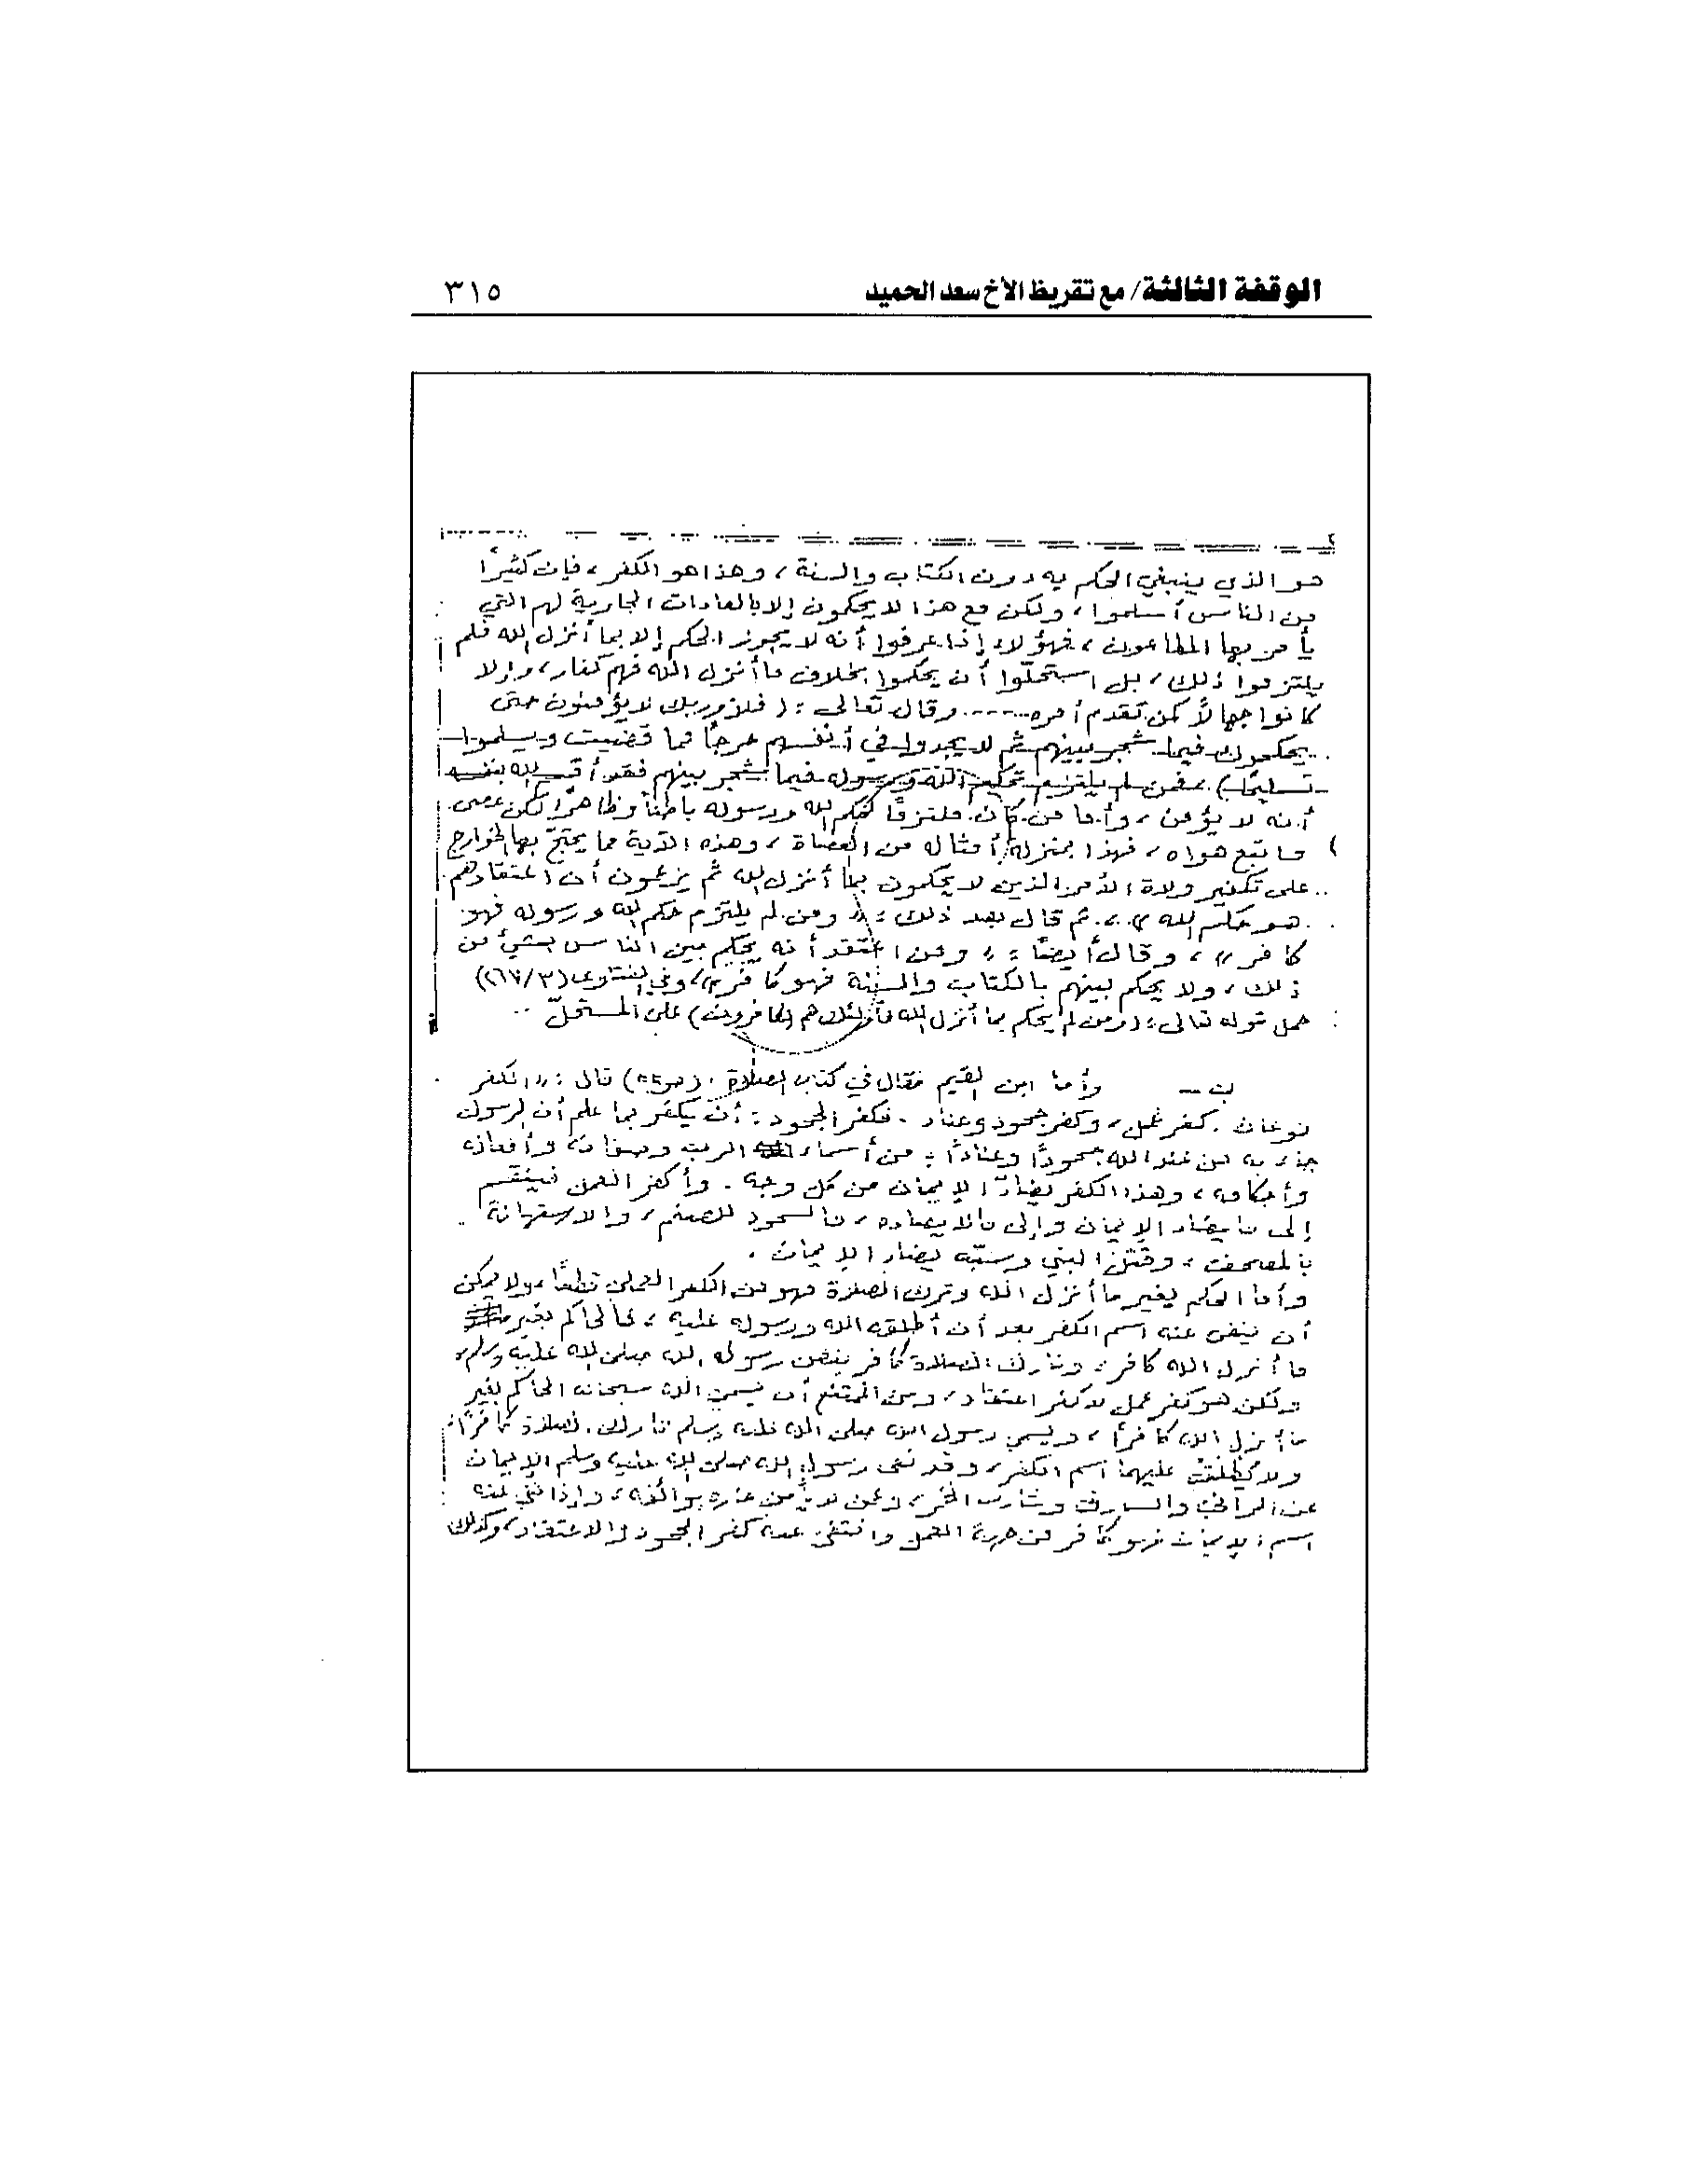 الوقفة الثالثة/ مع تقريظ الأخ سعد الحميد
٣١٥
هو الذي ينبغي الحكم به دون الكتاب والسنة، وهذا هو الكفر، فإن كثيرًا
من الناس أسلموا، ولكن مع هذا لا يحكمون إلا بالعادات الجارية لهم التي
يأمر بها المطاعون، فهؤلاء إذا عرفوا أنه لا يجوز الحكم إلا بما أنزل الله فلم
يلتزموا ذلك، بل استحلّوا أن يحكموا بخلاف ما أنزل الله فهم كفار، وإلا
كانوا جهالًا كمن تقدم أمره..... وقال تعالى: (فلا وربك لا يؤمنون حتى
يحكموك فيما شجر بينهم ثم لا يجدوا في أنفسهم حرجًا مما قضيت ويسلموا
تسليمًا)، فمن لم يلتزم تحكيم الله ورسوله فيما شجر بينهم فقد أقسم الله بنفسه
أنه لا يؤمن، وأما من كان ملتزمًا لحكم الله ورسوله باطنًا وظاهرًا لكن عصى
واتبع هواه، فهذا بمنزلة أمثاله من العصاة، وهذه الآية مما يحتجّ بها الخوارج
على تكفير ولاة الأمر الذين لا يحكمون بما أنزل الله ثم يزعمون أن اعتقادهم
هو حكم الله»... ثم قال بعد ذلك: «ومن لم يلتزم حكم الله ورسوله فهو
كافر»، وقال أيضًا: «ومن اعتقد أنه يحكم بين الناس بشيء من
ذلك، ولا يحكم بينهم بالكتاب والسنة فهو كافر»، وفي الفتاوى (٣/٢٦٧)
حمل قوله تعالى: (ومن لم يحكم بما أنزل الله فأولئك هم الكافرون) على المستحلّ
ب - وأما ابن القيم فقال في كتاب الصلاة (ص٥٥) قال: «الكفر
نوعان. كفر عمل، وكفر جحود وعناد. فكفر الجحود: أن يكفر بما علم أن الرسول
جاء به من عند الله جحودًا وعنادًا؛ من أسماء الرب وصفاته وأفعاله
وأحكامه، وهذا الكفر يضادّ الإيمان من كل وجه. وأما كفر العمل فينقسم
إلى ما يضاد الإيمان وإلى ما لا يضاده، فالسجود للصنم، والاستهانة
بالمصحف، وقتل النبي وسبّه يضاد الإيمان.
وأما الحكم بغير ما أنزل الله وترك الصلاة فهو من الكفر العملي قطعًا، ولا يمكن
أن ينفى عنه اسم الكفر بعد أن أطلقه الله ورسوله عليه، فالحاكم بغير
ما أنزل الله كافر، وتارك الصلاة كافر بنص رسول الله صلى الله عليه وسلم،
ولكن هو كفر عمل لا كفر اعتقاد، ومن الممتنع أن يسمي الله سبحانه الحاكم بغير
ما أنزل الله كافرًا، ويسمي رسول الله صلى الله عليه وسلم تارك الصلاة كافرًا،
ولا يطلق عليهما اسم الكفر، وقد نفى رسول الله صلى الله عليه وسلم الإيمان
عن الزاني والسارق وشارب الخمر، وعمن لا يأمن جاره بوائقه، وإذا نفي عنه
اسم الإيمان فهو كافر من جهة العمل وانتفى عنه كفر الجحود والاعتقاد، وكذلك